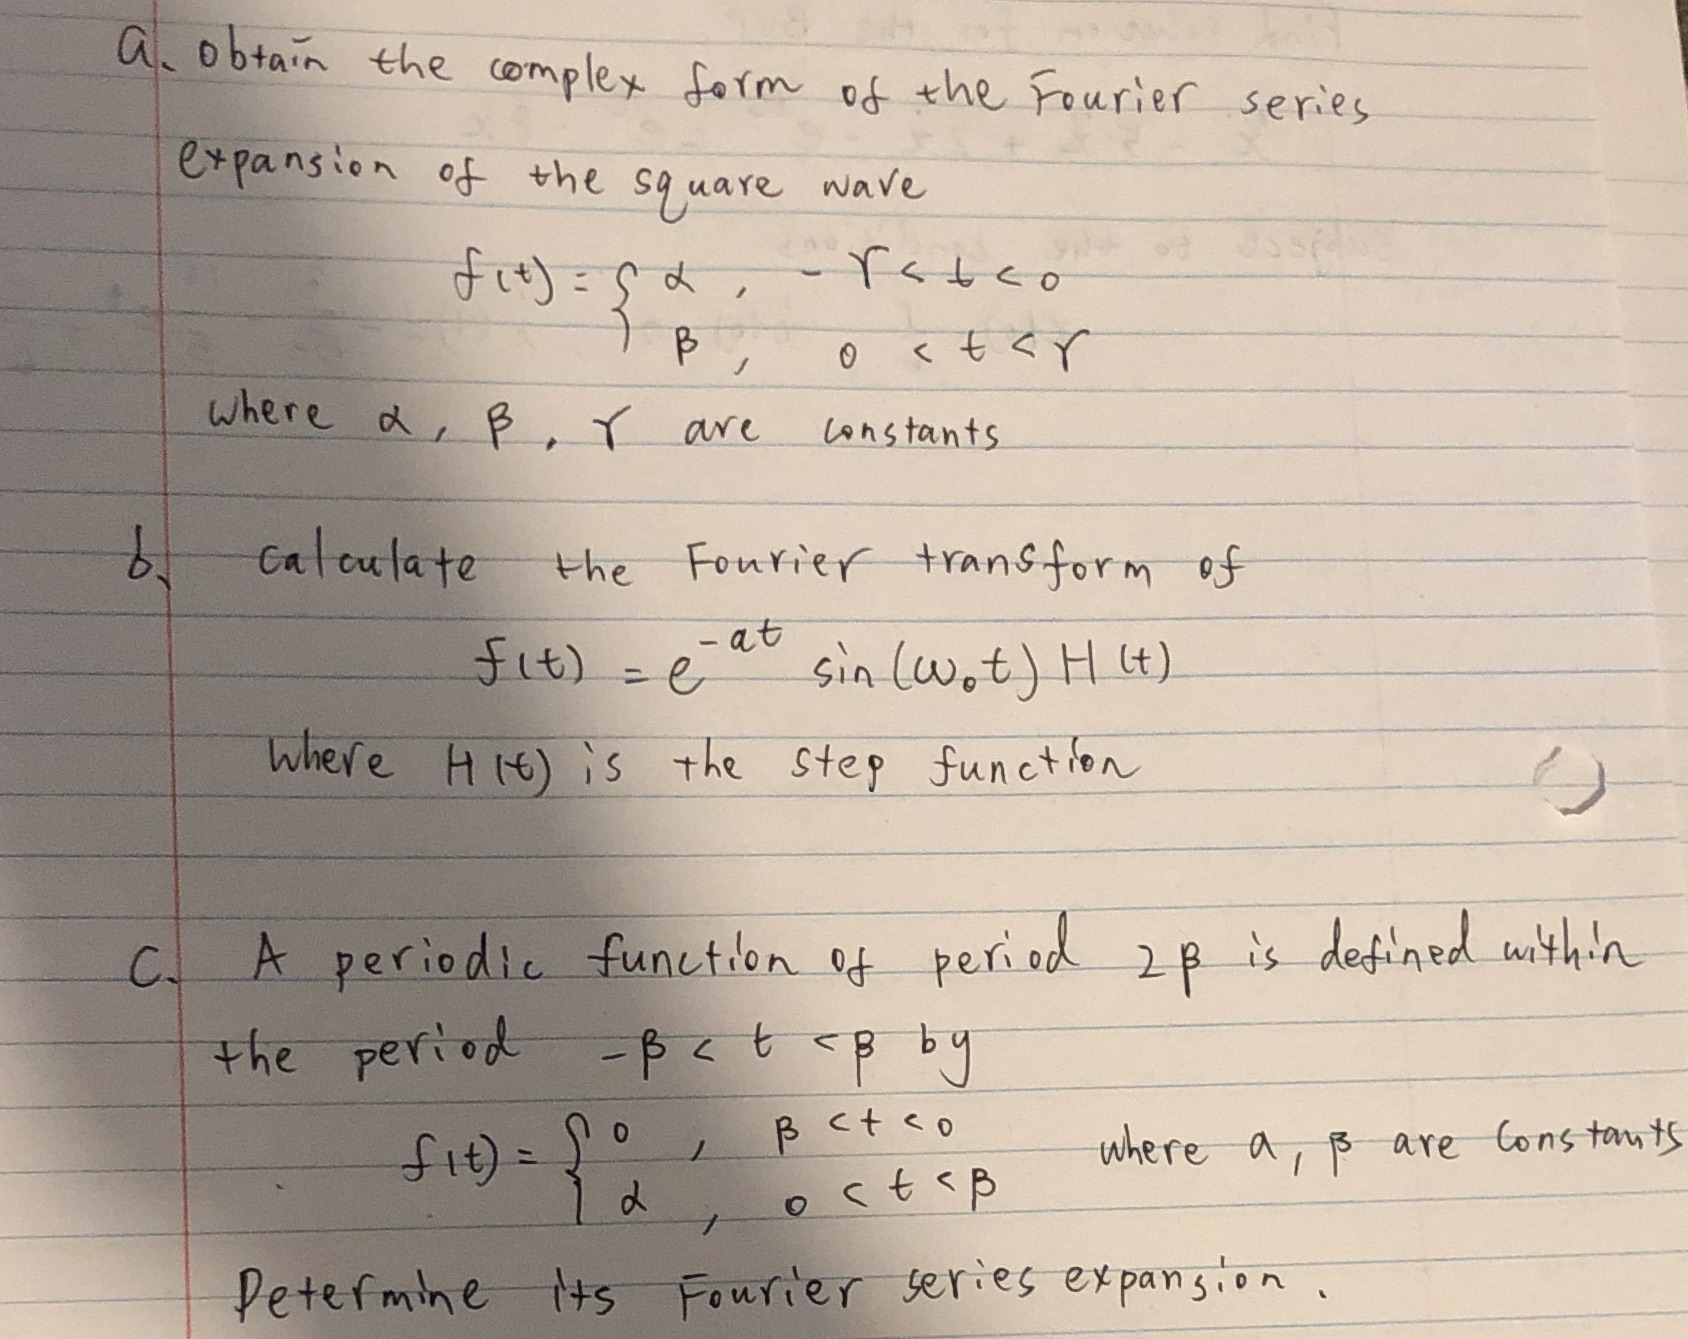 a. obtain the complex form of the Fourier series
expansion of the square wave
f(t) = { α , - γ < t < 0
β , 0 < t < γ
where α, β, γ are constants
b. calculate the Fourier transform of
f(t) = e^{-at} sin(ω₀t) H(t)
where H(t) is the step function
C. A periodic function of period 2β is defined within
the period -β < t < β by
f(t) = { 0 , β < t < 0 where a, β are constants
α , 0 < t < β
Determine its Fourier series expansion.